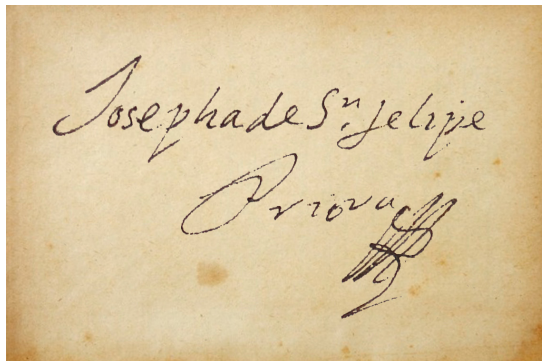 Josepha de Sn. Felipe
Priora